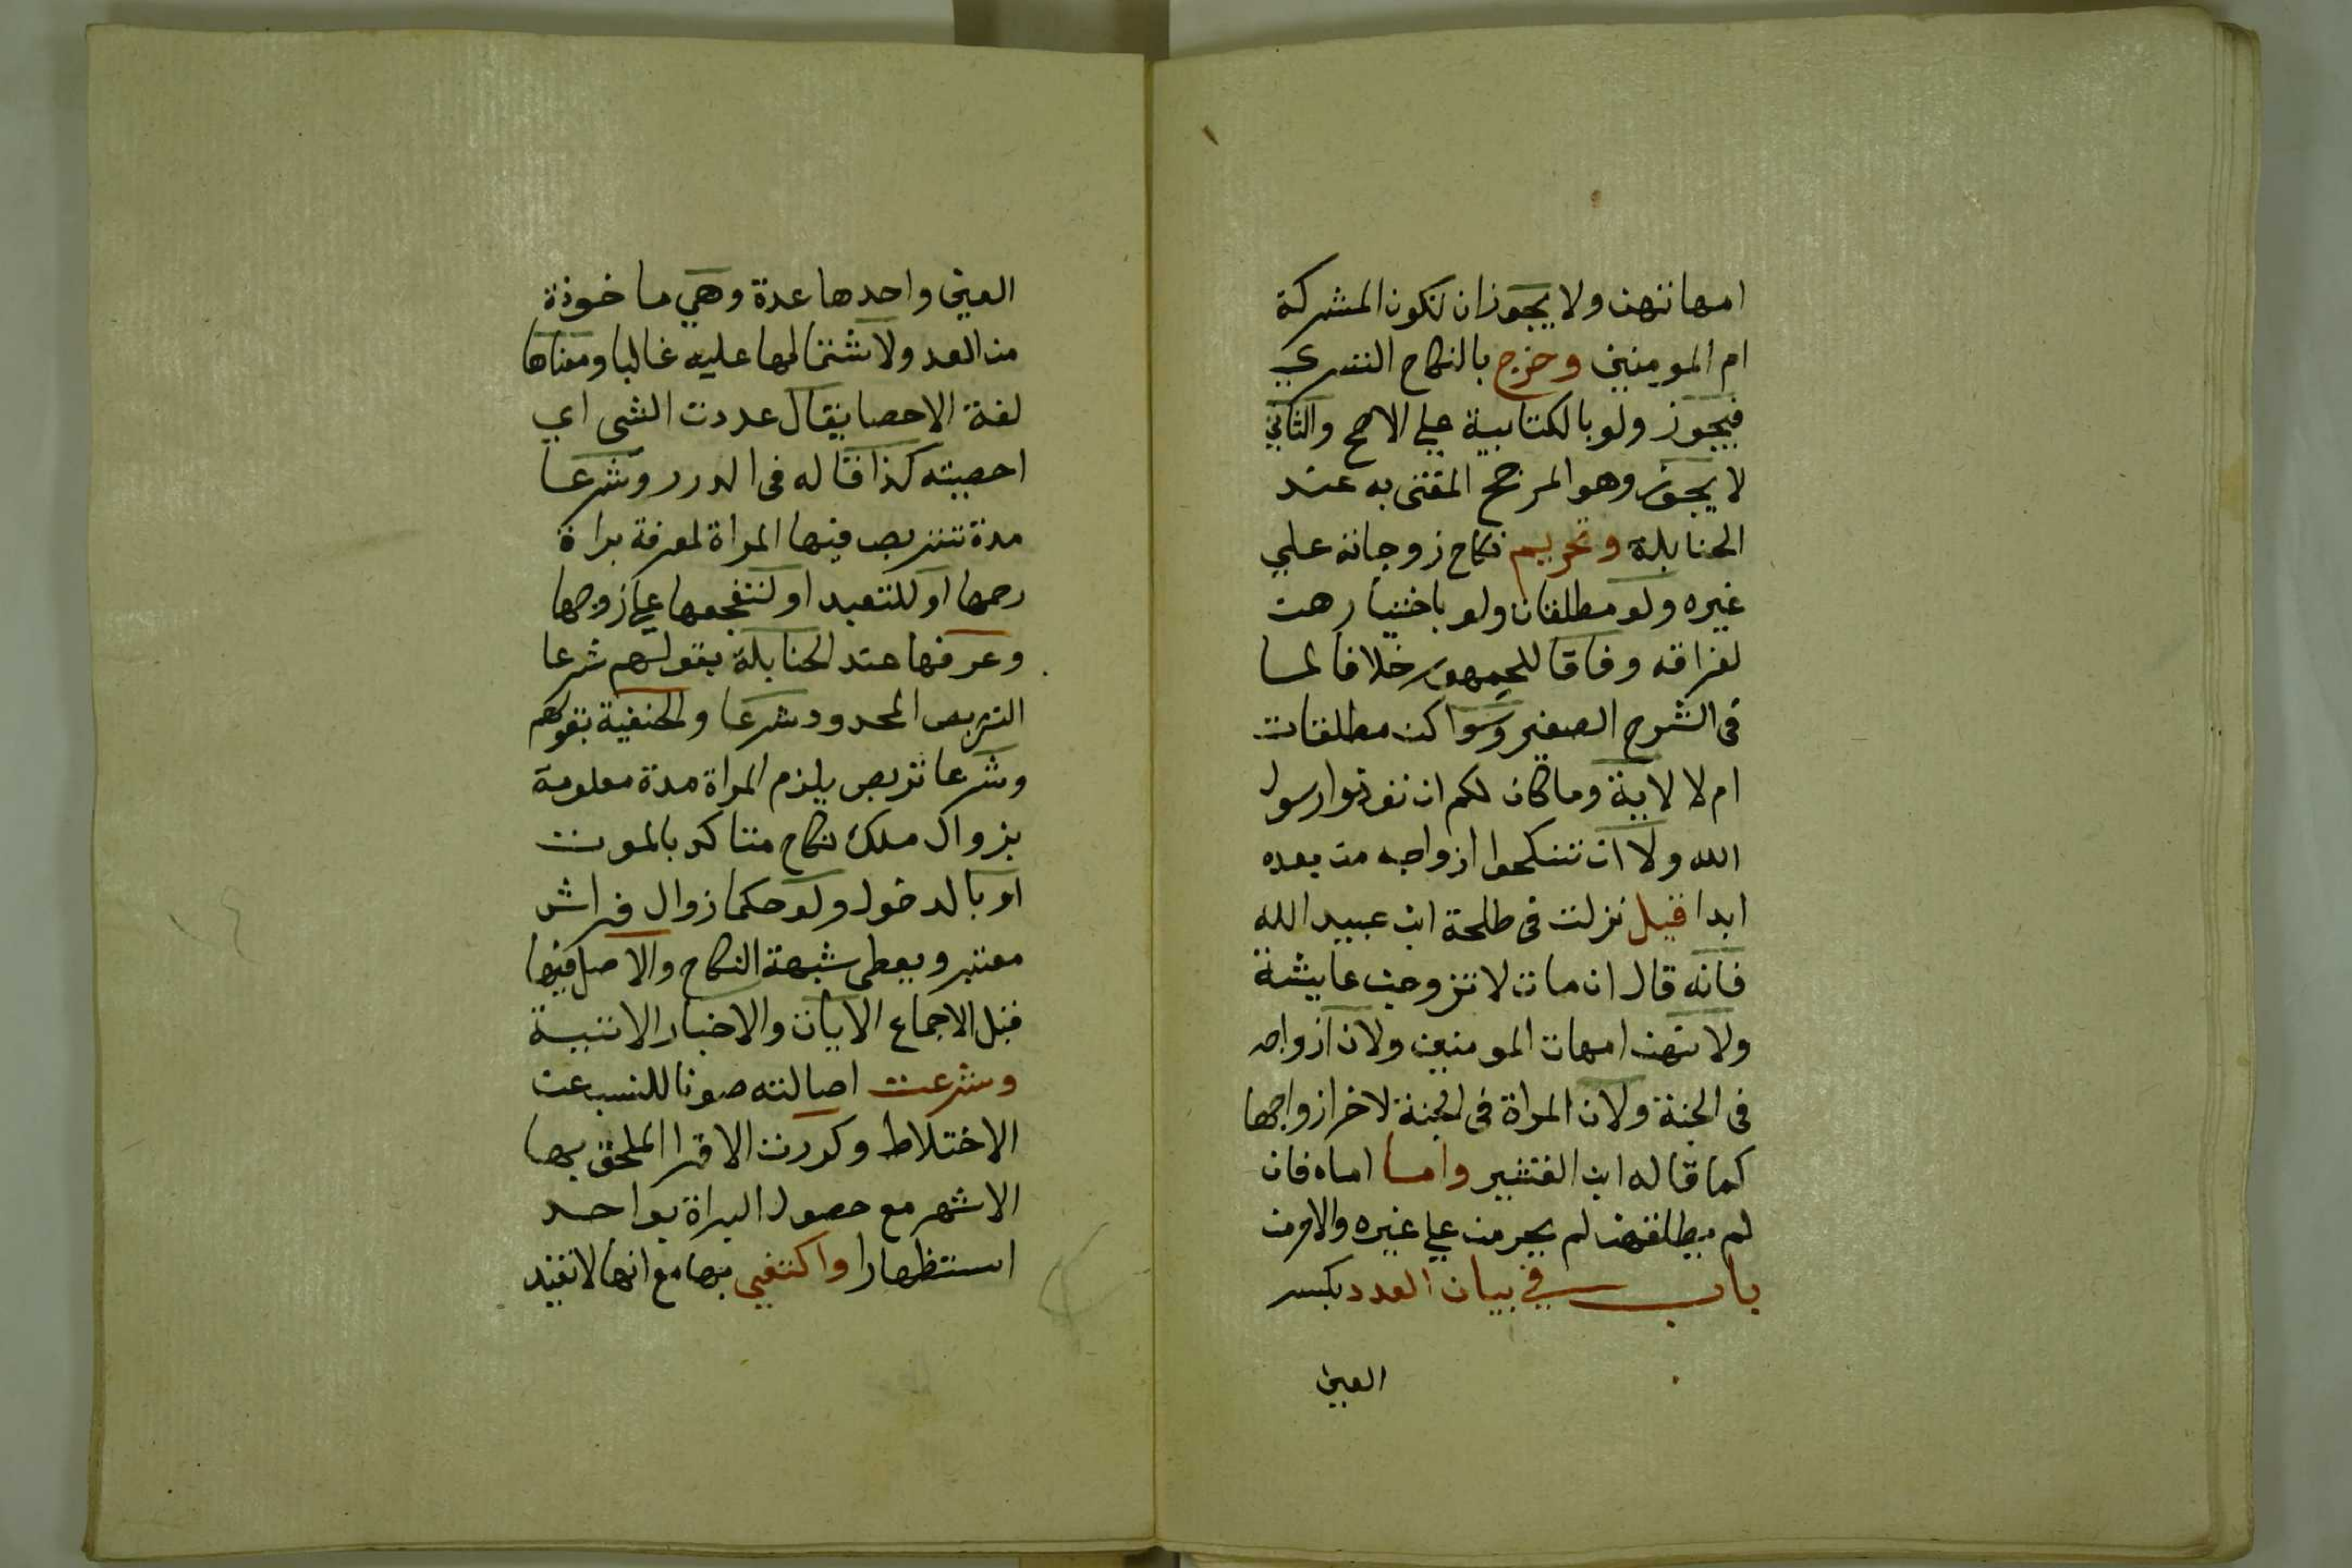 امهاتهن ولا يجوز ان تكون المشركة
ام المومنين وخرج بالنكاح التسري
فيجوز ولو بالكتابية علي الاصح والثاني
لا يجوز وهو المرجح المفتى به عند
الحنابلة وتحريم نكاح زوجاته علي
غيره ولو مطلقات ولو باختيارهن
لفراقه وفاقا للجمهور خلافا لما
فى الشرح الصغير وسوا كن مطلقات
ام لا لاية وما كان لكم ان توذوا رسول
الله ولا ان تنكحوا ازواجه من بعده
ابدا قيل نزلت فى طلحة ابن عبيد الله
فانه قال ان مات لاتزوجن عايشة
ولانهن امهات المومنين ولان ازواجه
فى الجنة ولان المراة فى الجنة لاخر ازواجها
كما قاله ابن القشير واما اماه فان
لم يطلقهن لم يحرمن علي غيره والا حرمن
باب في بيان العدد بكسر
العين
العين واحدها عدة وهي ماخوذة
من العد ولاشتمالها عليه غالبا ومعناها
لغة الاحصا يقال عددت الشى اي
احصيته كذا قاله فى الدرر وشرعا
مدة تتربص فيها المراة لمعرفة براة
رحمها او للتعبد او لتفجعها علي زوجها
وعرفها عند الحنابلة بقولهم شرعا
التربص المحدود شرعا والحنفية بقولهم
وشرعا تربص يلزم المراة مدة معلومة
بزوال ملك نكاح متاكد بالموت
او بالدخول ولو حكما زوال فراش
معتبر ويعطى شبهة النكاح والاصل فيها
قبل الاجماع الايات والاخبار الاتية
وشرعت اصالته صونا للنسب عن
الاختلاط وكررت الاقرا الملحق بها
الاشهر مع حصول البراة بواحد
استظهارا واكتفي بها مع انها لا تفيد